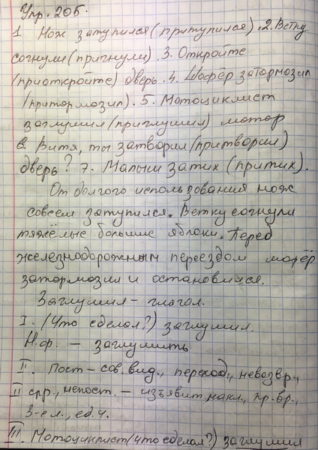 Упр. 206.
1 Нож затупился (притупился). 2. Ветку
согнули (пригнули). 3. Откройте
(приоткройте) дверь. 4. Шофёр затормозил
(притормозил). 5. Мотоциклист
заглушил (приглушил) мотор
6 Витя, ты затворил (притворил)
дверь? 7. Малыш затих (притих).
От долгого использования нож
совсем затупился. Ветку согнули
тяжёлые большие яблоки. Перед
железнодорожным переездом шофёр
затормозил и остановился.
Заглушил - глагол.
I. (Что сделал?) заглушил.
Н.ф. - заглушить
II. Пост - сов. вид., переход., невозвр.,
II спр., непост. - изъявит. накл., пр. вр.,
3-е л., ед. ч.
III. Мотоциклист (что сделал?) заглушил